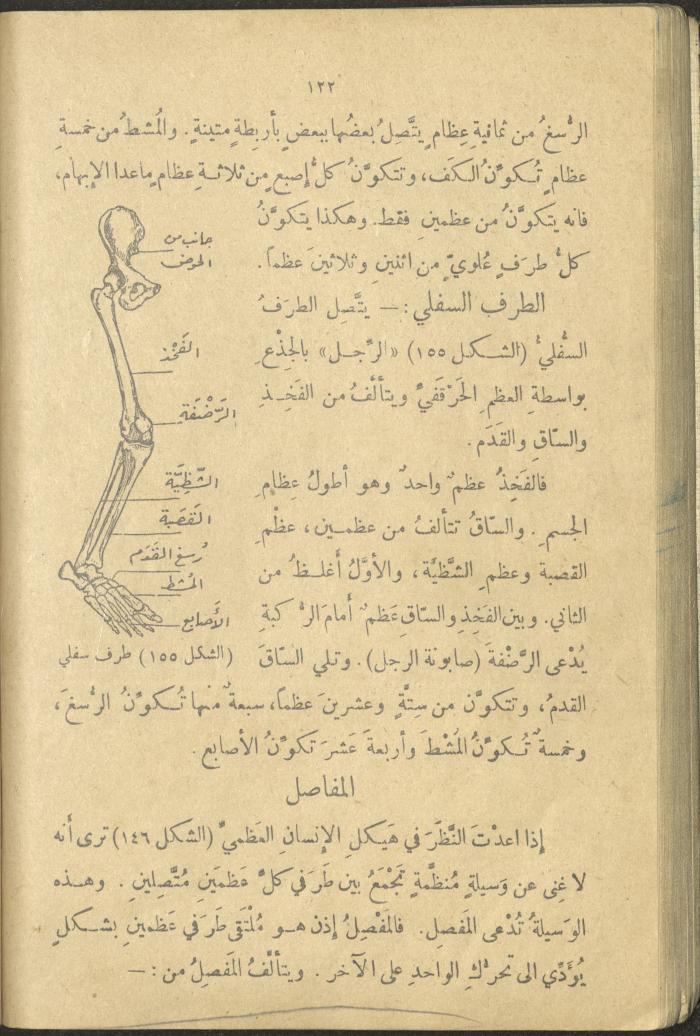 ١٢٢
الرُّسغُ من ثمانيةِ عِظامٍ يتَّصِلُ بعضُها ببعضٍ بأربِطةٍ متينةٍ . والمُشطُ من خمسةِ
عظامٍ تُكوِّنُ الكَف، وتتكوَّنُ كلُّ إصبعٍ من ثلاثةِ عظامٍ ماعدا الإبهام،
فانه يتكوَّنُ من عظمينِ فقط. وهكذا يتكوَّنُ
كلُّ طرَفٍ عُلويٍّ من اثنينِ وثلاثينَ عظماً .
الطرف السفلي : — يتَّصِل الطرَفُ
السُّفليُّ (الشكل ١٥٥) «الرِّجل» بالجِذْعِ
بواسطةِ العظمِ الحَرْقَفيِّ ويتألَّفُ من الفَخِذِ
والسّاقِ والقَدَم .
فالفَخِذُ عظمٌ واحدٌ وهو أطولُ عِظامِ
الجسمِ . والسّاقُ تتألفُ من عظمين ، عظْمِ
القصبة وعظمِ الشَّظيَّة ، والأوَّلُ أغلظُ من
الثاني . وبين الفَخِذِ والسّاقِ عَظمٌ أمامَ الرُّكبةِ
يُدْعى الرَّضْفةَ (صابونة الرجل) . وتلي السّاقَ
القدمُ ، وتتكوَّن من سِتَّةٍ وعشرينَ عظماً، سبعةٌ منها تُكوِّنُ الرُّسغَ ،
وخمسةٌ تُكوِّنُ المُشْطَ وأربعةَ عَشرَ تكوِّنُ الأصابع .
جانب من
الحوض
الفَخْذ
الرَّضْفَة
الشَّظِيَّة
القَصَبة
رُسغ القَدَم
المُشط
الأَصابع
(الشكل ١٥٥) طرف سفلي
المفاصل
إذا اعدْتَ النَّظَرَ في هَيكلِ الإنسانِ العَظميِّ (الشكل ١٤٦) ترى أنه
لا غِنى عن وَسيلةٍ مُنظَّمةٍ تَجْمَعُ بين طَرَفي كلِّ عَظمَينِ مُتَّصِلينِ . وهذه
الوَسيلةُ تُدْعى المَفصل . فالمَفْصِلُ إذن هو مُلْتَقى طَرَفي عَظمينِ بشكلٍ
يُؤَدِّي الى تحرُّكِ الواحدِ على الآخر . ويتألَّفُ المَفصِلُ من : —